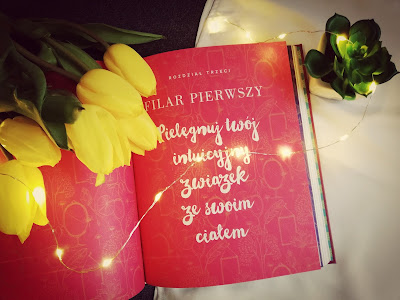 ROZDZIAŁ TRZECI
FILAR PIERWSZY
Pielęgnuj twój
intuicyjny
związek
ze swoim
ciałem